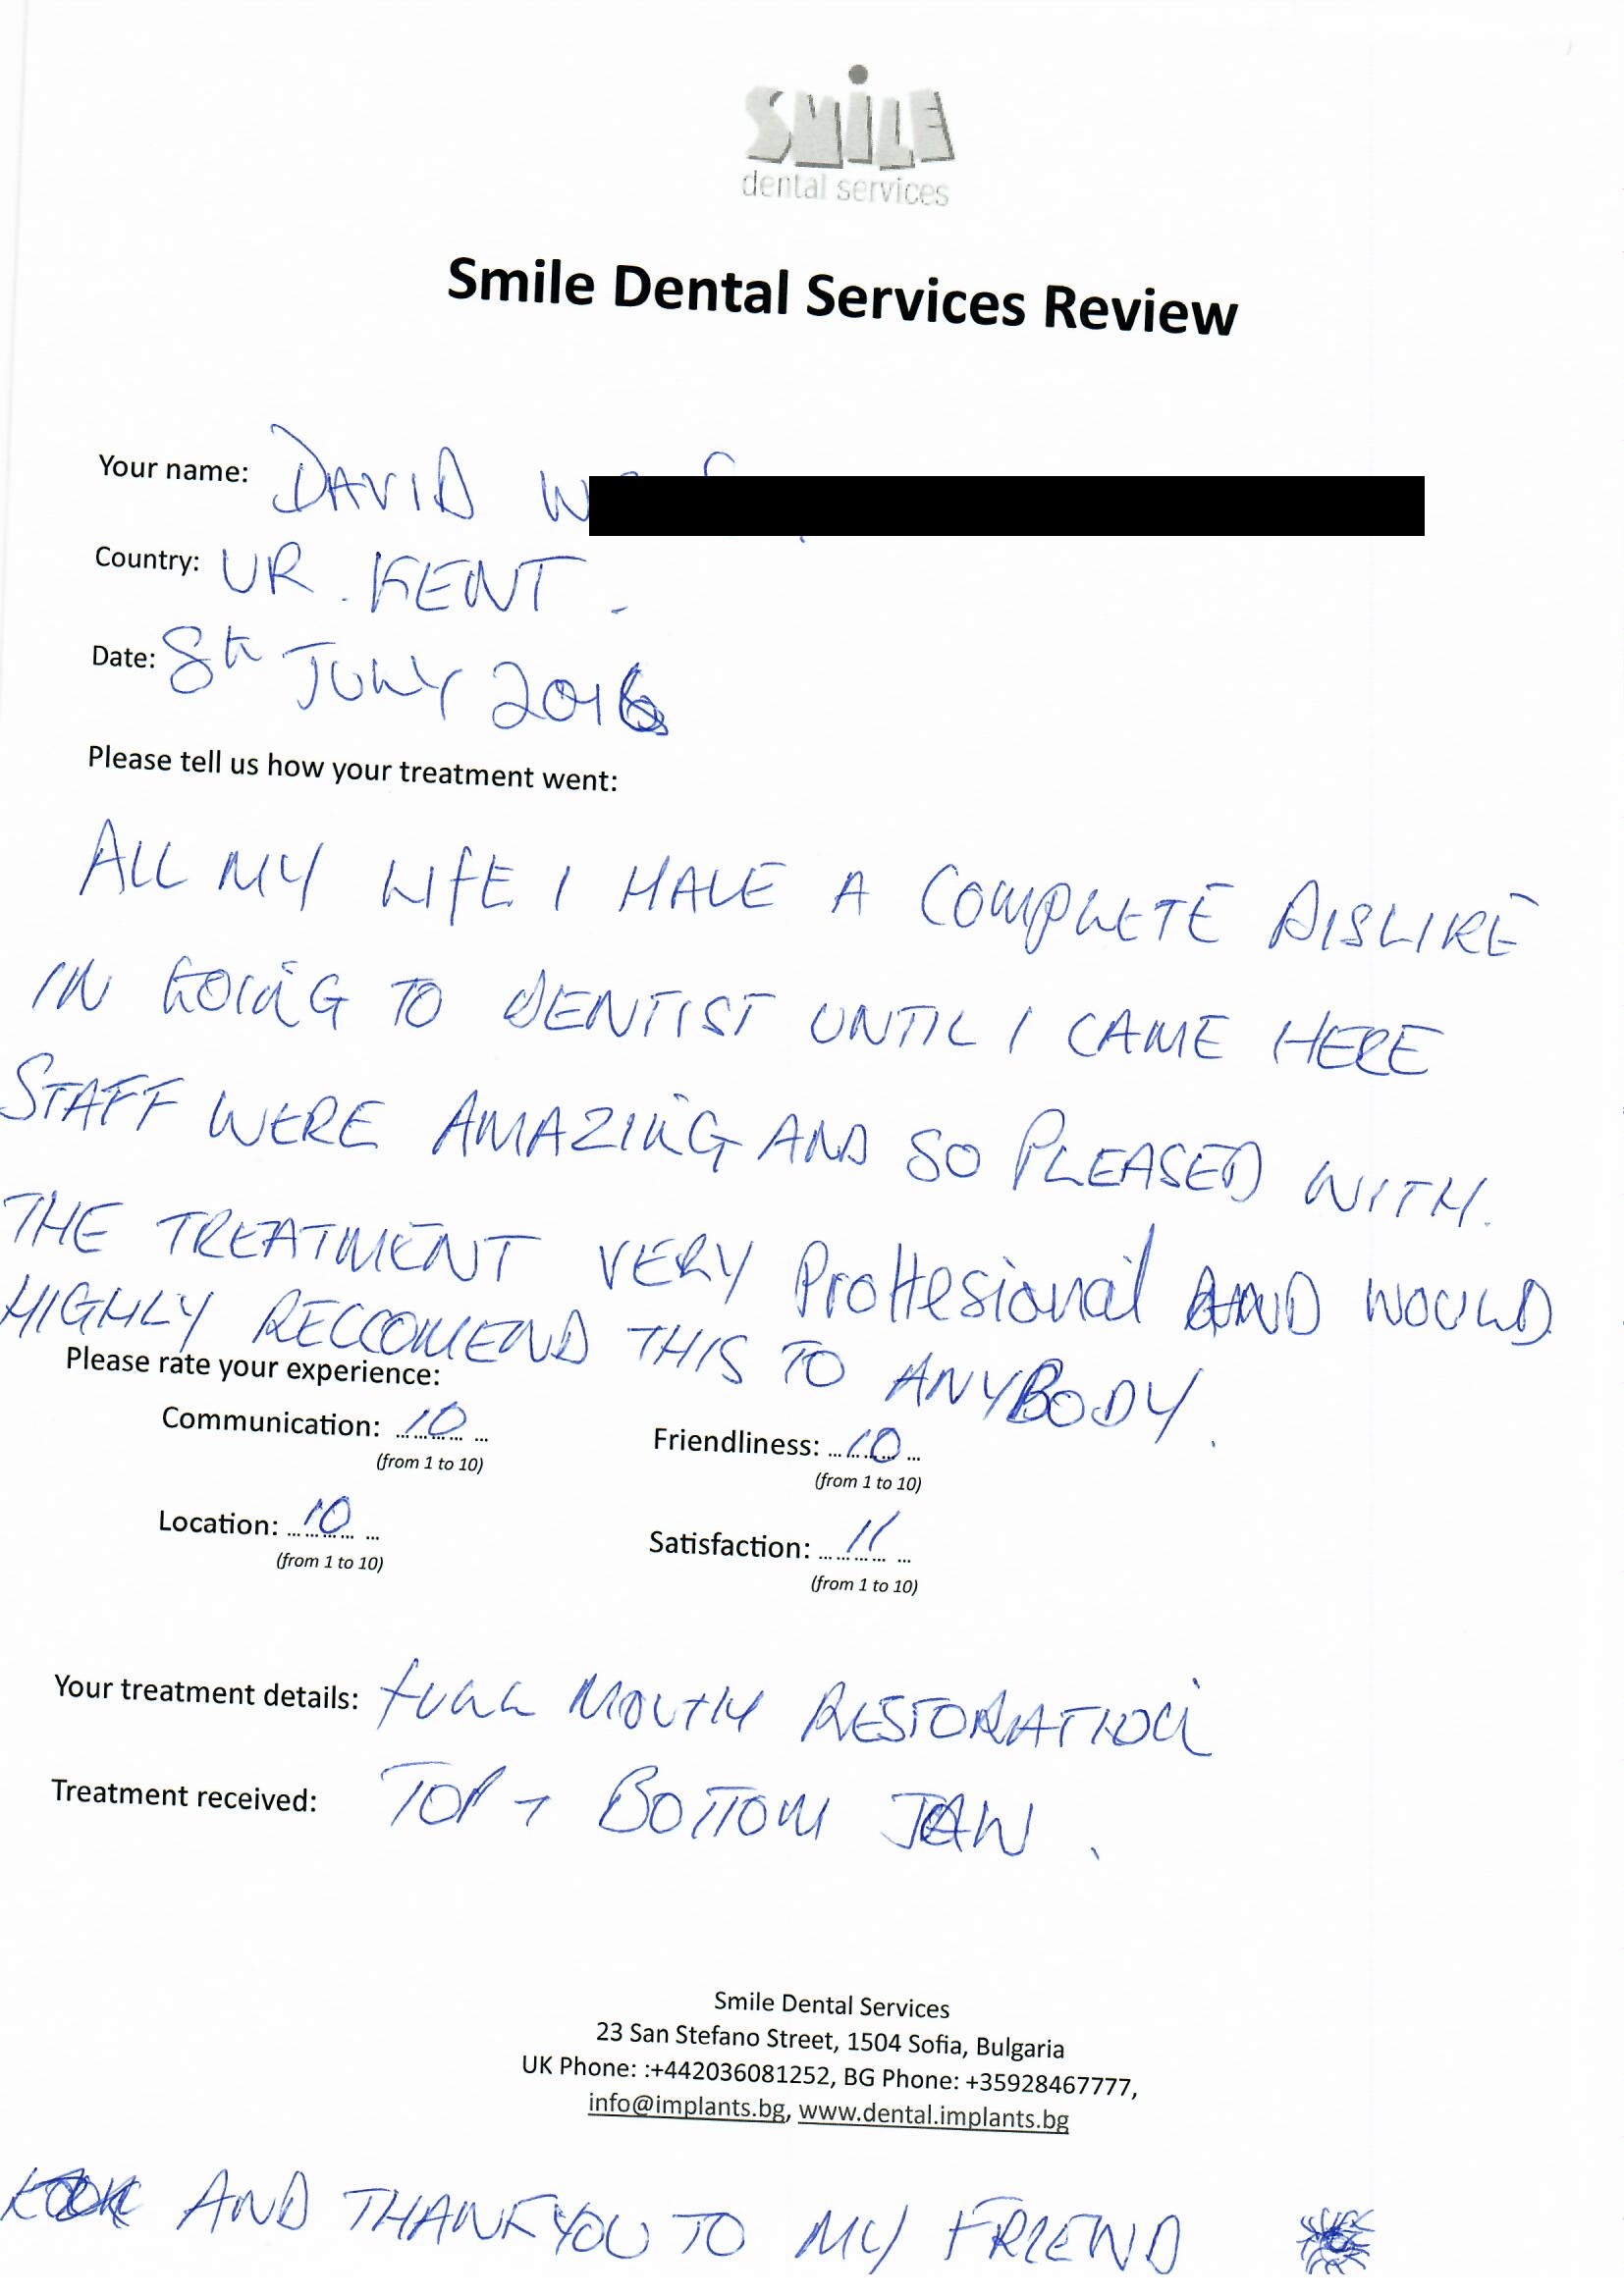 SMiLE
dental services
Smile Dental Services Review
Your name: DAVID W
Country: UK. KENT.
Date: 8th JULY 2016
Please tell us how your treatment went:
ALL MY LIFE I HAVE A COMPLETE DISLIKE
IN GOING TO DENTIST UNTIL I CAME HERE
STAFF WERE AMAZING AND SO PLEASED WITH.
THE TREATMENT VERY Proffesional AND WOULD
HIGHLY RECCOMEND THIS TO ANYBODY.
Please rate your experience:
Communication: 10 Friendliness: 10
(from 1 to 10) (from 1 to 10)
Location: 10 Satisfaction: 11
(from 1 to 10) (from 1 to 10)
Your treatment details: FULL MOUTH RESTORATION
Treatment received: TOP + BOTTOM JAW.
Smile Dental Services
23 San Stefano Street, 1504 Sofia, Bulgaria
UK Phone: :+442036081252, BG Phone: +35928467777,
info@implants.bg, www.dental.implants.bg
AND THANKYOU TO MY FRIEND